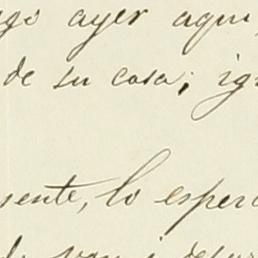 ego ayer aqui,
de su casa; ig
sente, lo esper